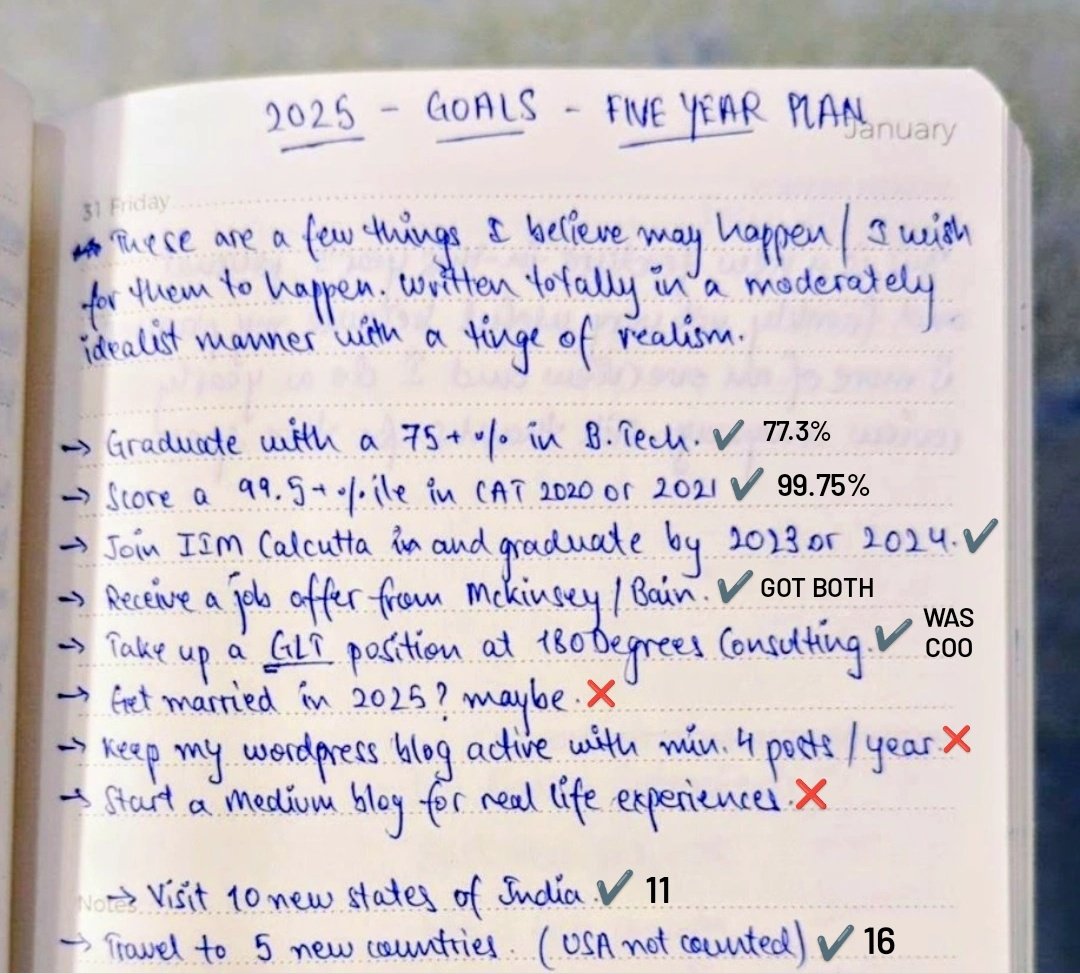 2025 - GOALS - FIVE YEAR PLAN
January
31 Friday
These are a few things I believe may happen / I wish
for them to happen. Written totally in a moderately
idealist manner with a tinge of realism.
→ Graduate with a 75+ % in B.Tech. ✔ 77.3%
→ Score a 99.5+ %ile in CAT 2020 or 2021 ✔ 99.75%
→ Join IIM Calcutta and graduate by 2023 or 2024. ✔
→ Receive a job offer from Mckinsey / Bain. ✔ GOT BOTH
→ Take up a GLT position at 180 Degrees Consulting. ✔ WAS COO
→ Get married in 2025? maybe. ❌
→ Keep my wordpress blog active with min. 4 posts / year ❌
→ Start a Medium blog for real life experiences. ❌
Notes
→ Visit 10 new states of India. ✔ 11
→ Travel to 5 new countries. (USA not counted) ✔ 16